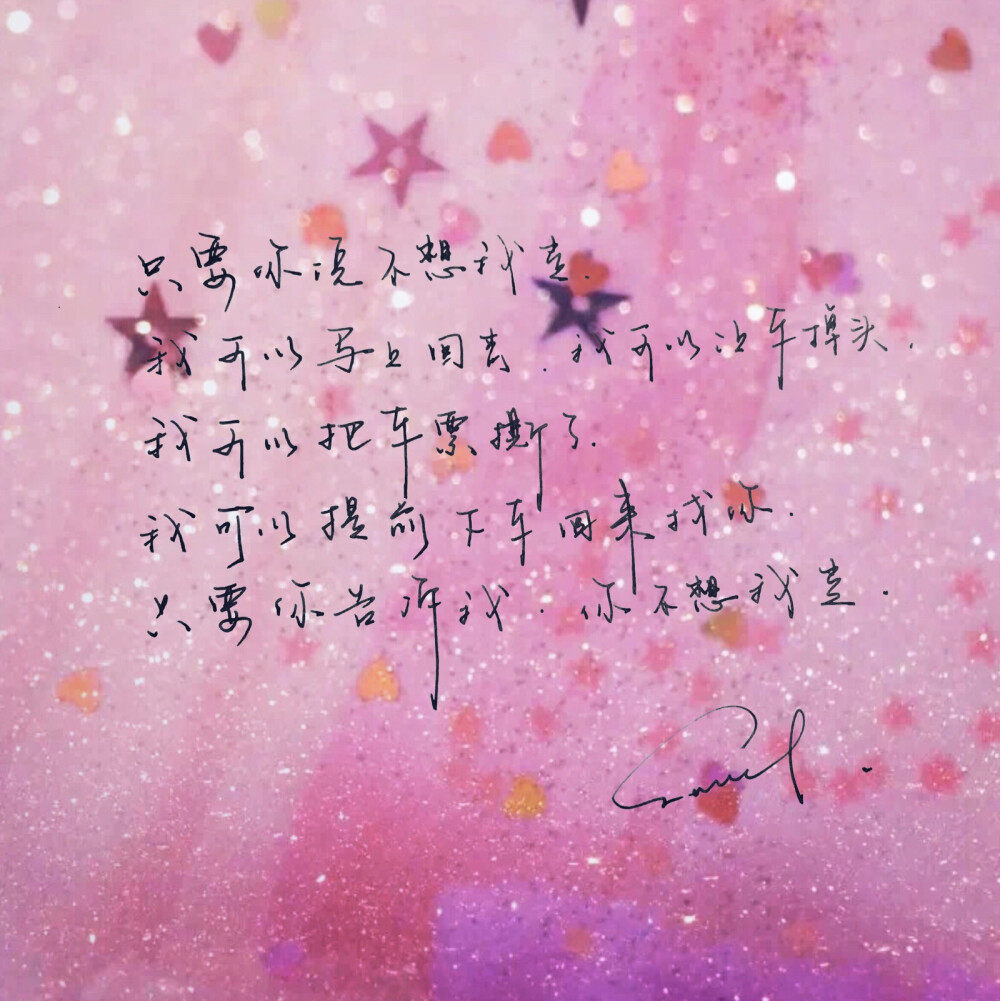 只要你说不想我走.
我可以马上回去.我可以让车掉头.
我可以把车票撕了.
我可以提前下车回来找你.
只要你告诉我.你不想我走.